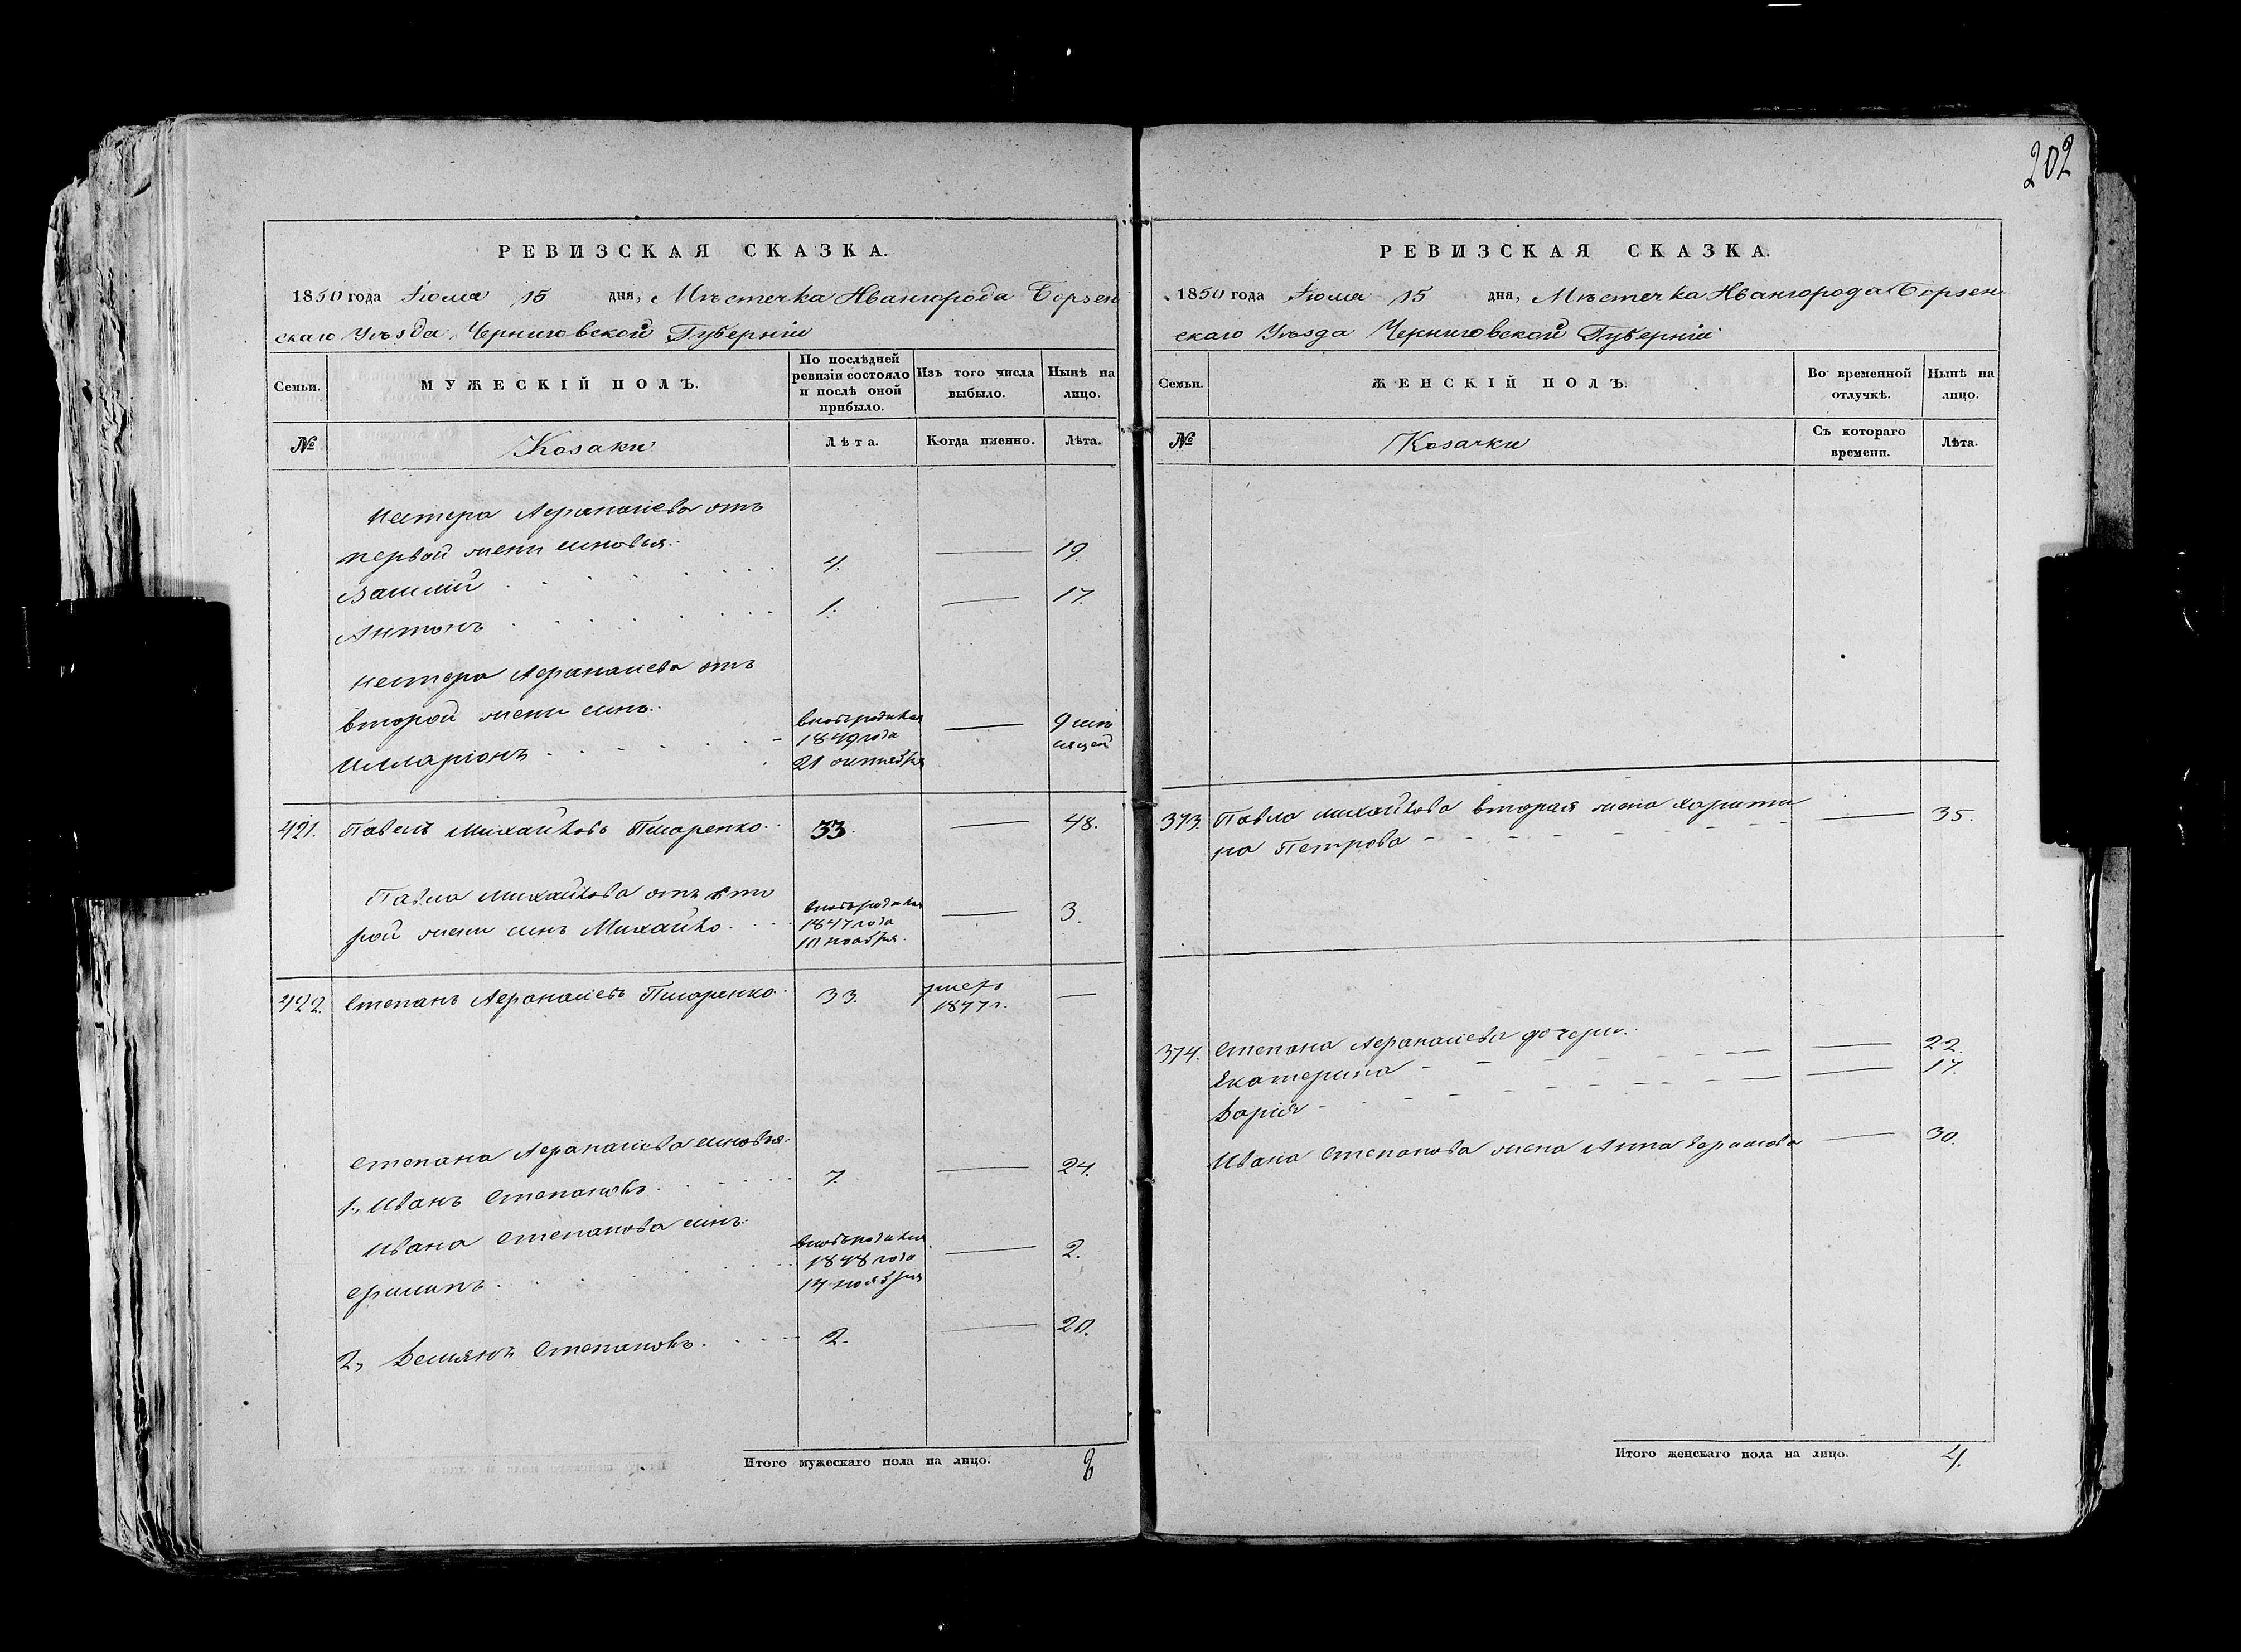 202
РЕВИЗСКАЯ СКАЗКА.
1850 года Іюля 15 дня, Мѣстечка Ивангорода Борзен
скаго Уѣзда Черниговской Губерніи
Семьи. МУЖЕСКІЙ ПОЛЪ. По послѣдней ревизіи состояло и послѣ оной прибыло. Изъ того числа выбыло. Нынѣ на лицо.
№ Козаки Лѣта. Когда именно. Лѣта.
Нестера Афанасіева отъ
первой жены сыновья:
Василій 4. — 19.
Антонъ 1. — 17.
Нестера Афанасіева отъ
второй жены сынъ:
Илларіонъ вновьрожденъ 1849 года 21 октября — 9 мѣсяцей
421. Павелъ Михайловъ Писаренко 33. — 48.
Павла Михайлова отъ вто
рой жены сынъ Михайло вновьрожденъ 1847 года 10 ноября. — 3.
422. Степанъ Афанасіевъ Писаренко 33. умеръ 1847 г. —
Степана Афанасіева сыновья:
1., Иванъ Степановъ 7. — 24.
Ивана Степанова сынъ:
Филипъ вновьрожденъ 1848 года 14 ноября — 2.
2, Демянъ Степановъ 2. — 20.
Итого мужескаго пола на лицо. 8
РЕВИЗСКАЯ СКАЗКА.
1850 года Іюля 15 дня, Мѣстечка Ивангорода Борзен
скаго Уѣзда Черниговской Губерніи
Семьи. ЖЕНСКІЙ ПОЛЪ. Во временной отлучкѣ. Нынѣ на лицо.
№ Козачки Съ котораго времени. Лѣта.
373. Павла Михайлова вторая жена Харити
на Петрова — 35.
374. Степана Афанасіева дочери:
Екатерина — 22.
Дарія — 17.
Ивана Степанова жена Анна — 30.
Итого женскаго пола на лицо. 4.